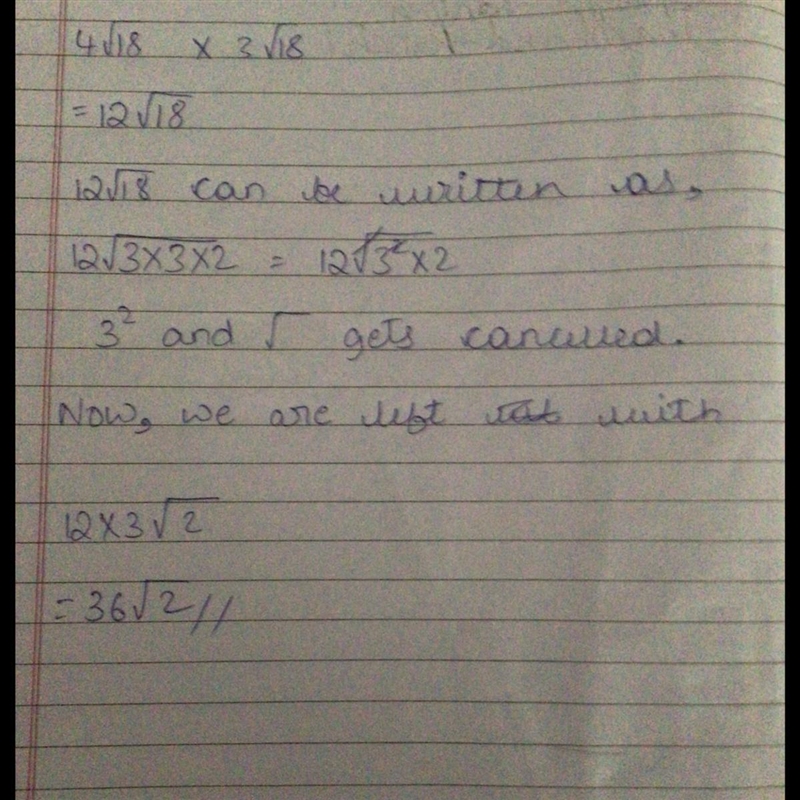 4√18 × 3√18
= 12√18
12√18 can be written as,
12√3×3×2 = 12√3²×2
3² and √ gets cancelled.
Now, we are left with
12×3√2
= 36√2//